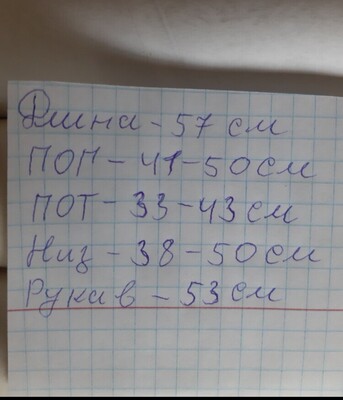 Длина - 57 см
ПОГ - 41-50 см
ПОТ - 33-43 см
Низ - 38-50 см
Рукав - 53 см